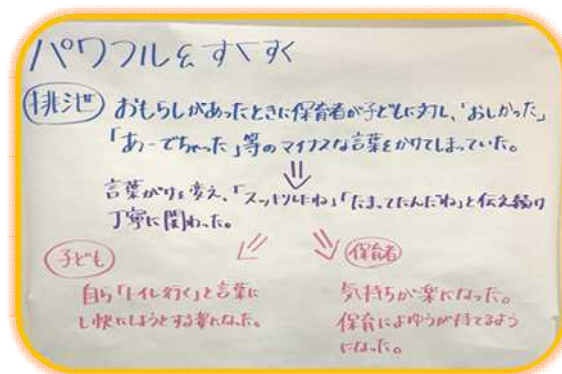 パワフル&すくすく
排泄 おもらしがあったときに保育者が子どもに対し、「おしかった」
「あーでちゃった」等のマイナスな言葉をかけてしまっていた。
⇓
言葉がけを変え、「スッキリしたね」「たまってたんだね」と伝え続け
丁寧に関わった。
子ども
自ら「トイレ行く」と言葉に
し快にしようとする姿になった。
保育者
気持ちが楽になった。
保育によゆうが持てるよう
になった。